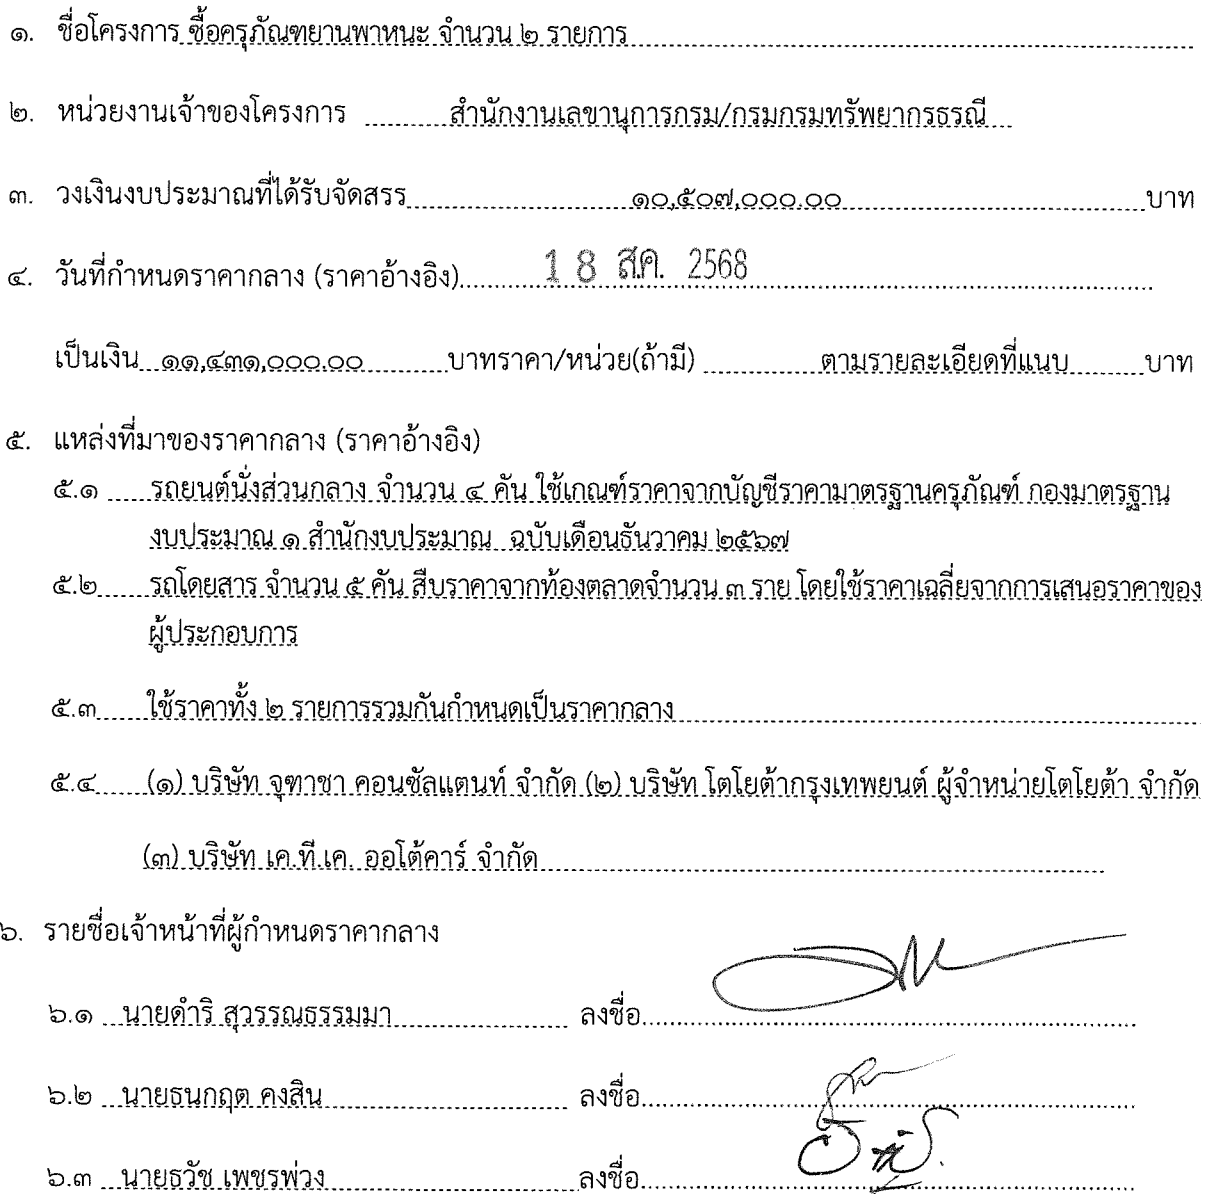 ๑. ชื่อโครงการ ซื้อครุภัณฑยานพาหนะ จำนวน ๒ รายการ
๒. หน่วยงานเจ้าของโครงการ สำนักงานเลขานุการกรม/กรมกรมทรัพยากรธรณี
๓. วงเงินงบประมาณที่ได้รับจัดสรร ๑๐,๕๐๗,๐๐๐.๐๐ บาท
๔. วันที่กำหนดราคากลาง (ราคาอ้างอิง) 18 ส.ค. 2568
เป็นเงิน ๑๑,๔๓๑,๐๐๐.๐๐ บาทราคา/หน่วย(ถ้ามี) ตามรายละเอียดที่แนบ บาท
๕. แหล่งที่มาของราคากลาง (ราคาอ้างอิง)
๕.๑ รถยนต์นั่งส่วนกลาง จำนวน ๔ คัน ใช้เกณฑ์ราคาจากบัญชีราคามาตรฐานครุภัณฑ์ กองมาตรฐาน
งบประมาณ ๑ สำนักงบประมาณ ฉบับเดือนธันวาคม ๒๕๖๗
๕.๒ รถโดยสาร จำนวน ๕ คัน สืบราคาจากท้องตลาดจำนวน ๓ ราย โดยใช้ราคาเฉลี่ยจากการเสนอราคาของ
ผู้ประกอบการ
๕.๓ ใช้ราคาทั้ง ๒ รายการรวมกันกำหนดเป็นราคากลาง
๕.๔ (๑) บริษัท จุฑาชา คอนซัลแตนท์ จำกัด (๒) บริษัท โตโยต้ากรุงเทพยนต์ ผู้จำหน่ายโตโยต้า จำกัด
(๓) บริษัท เค.ที.เค. ออโต้คาร์ จำกัด
๖. รายชื่อเจ้าหน้าที่ผู้กำหนดราคากลาง
๖.๑ นายดำริ สุวรรณธรรมมา ลงชื่อ
๖.๒ นายธนกฤต คงสิน ลงชื่อ
๖.๓ นายธวัช เพชรพ่วง ลงชื่อ